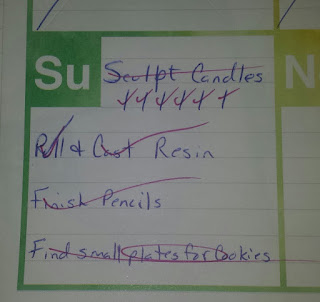 Su Sculpt Candles N
& Cast Resin
Finish Pencils
Find small plates for Cookies